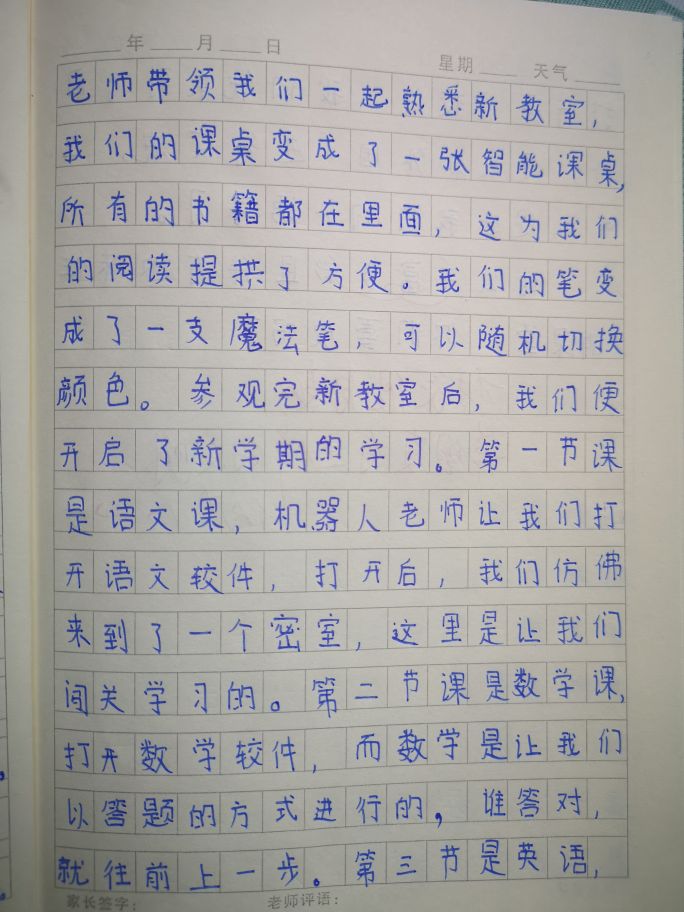 ____年____月____日
星期____ 天气____
老师带领我们一起熟悉新教室，
我们的课桌变成了一张智能课桌，
所有的书籍都在里面，这为我们
的阅读提拱了方便。我们的笔变
成了一支魔法笔，可以随机切换
颜色。参观完新教室后，我们便
开启了新学期的学习。第一节课
是语文课，机器人老师让我们打
开语文较件，打开后，我们仿佛
来到了一个密室，这里是让我们
闯关学习的。第二节课是数学课，
打开数学较件，而数学是让我们
以答题的方式进行的，谁答对，
就往前上一步。第三节是英语，
家长签字：
老师评语：